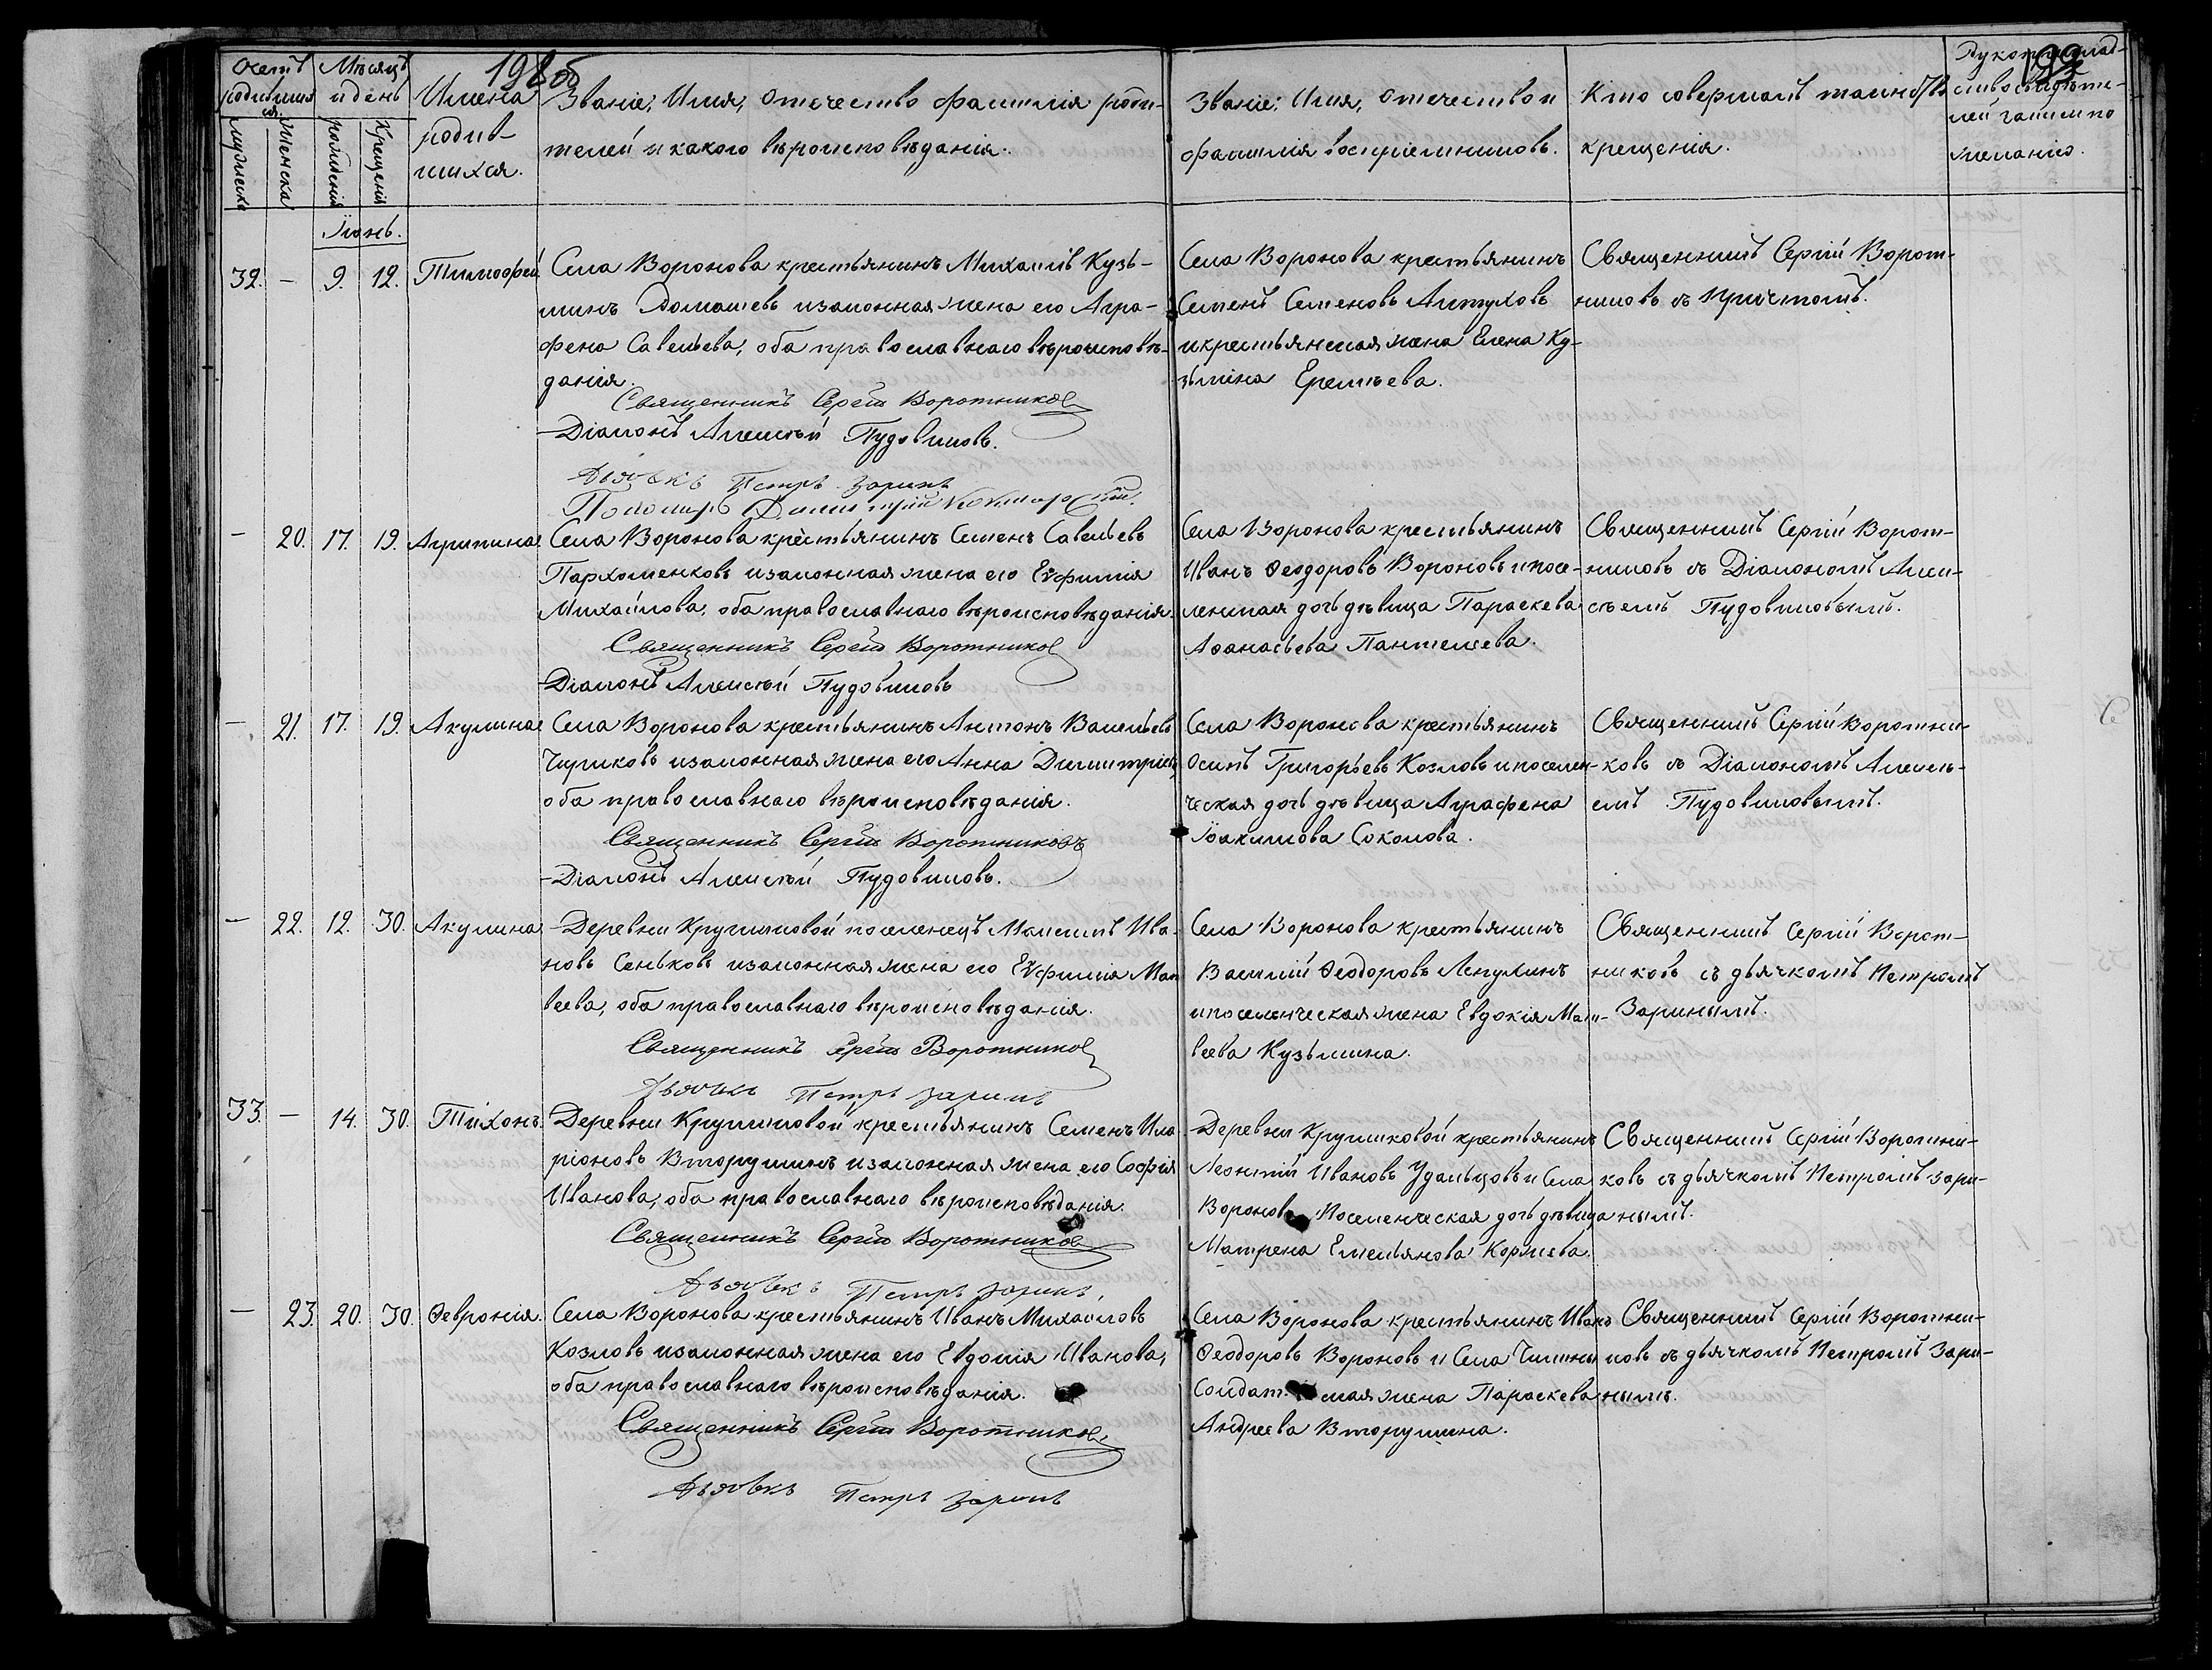 198об
199
Счетъ родившихся.
Мужеска
Женска
Мѣсяцъ и день
рожденія
Крещенія
Имена родив-
шихся.
Званіе, Имя, Отечество фамилія роди-
телей и какого вѣроисповѣданія.
Званіе, Имя, Отечество и
фамилія воспріемниковъ.
Кто совершалъ таинство
крещенія.
Рукоприклад-
ство свидѣте-
лей записи по
желанію.
Іюнь.
32. — 9. 12. Тимофей
Села Воронова крестьянинъ Михаилъ Кузь-
минъ Домашевъ изаконная жена его Агра-
фена Савельева, оба православнаго вѣроисповѣ-
данія.
Священникъ Сергій Воротников
Діаконъ Алексѣй Пудовиковъ.
Дьячекъ Петръ Заринъ
Пономарь Димитрій
Села Воронова крестьянинъ
Семенъ Семеновъ Алтуховъ
и крестьянская жена Елена Ку-
зьмина Еремѣева.
Священникъ Сергій Ворот-
никовъ съ причтомъ.
— 20. 17. 19. Агрипина
Села Воронова крестьянинъ Семенъ Савельевъ
Пархоменковъ изаконная жена его Еѵфимія
Михайлова, оба православнаго вѣроисповѣданія.
Священникъ Сергій Воротников
Діаконъ Алексѣй Пудовиковъ
Села Воронова крестьянинъ
Иванъ Ѳеодоровъ Вороновъ и посе-
ленская дочь дѣвица Параскева
Аѳанасьева Пантелеева.
Священникъ Сергій Ворот-
никовъ съ Діакономъ Алек-
сѣемъ Пудовиковымъ.
— 21. 17. 19. Акулина
Села Воронова крестьянинъ Антонъ Васильевъ
Чириковъ изаконная жена его Анна Димитріева,
оба православнаго вѣроисповѣданія.
Священникъ Сергій Воротниковъ
Діаконъ Алексѣй Пудовиковъ.
Села Воронова крестьянинъ
Осипъ Григорьевъ Козловъ и поселен-
ческая дочь дѣвица Аграфена
Іоакимова Соколова.
Священникъ Сергій Воротни-
ковъ съ Діакономъ Алексѣ-
емъ Пудовиковымъ.
— 22. 12. 30. Акулина
Деревни Кругликовой поселенецъ Максимъ Ива-
новъ Сеньковъ изаконная жена его Еѵфимія Мат
веева, оба православнаго вѣроисповѣданія.
Священникъ Сергій Воротников
Дьячекъ Петръ Заринъ
Села Воронова крестьянинъ
Василій Ѳеодоровъ Лепухинъ
и поселенческая жена Евдокія Мат-
веева Кузьмина.
Священникъ Сергій Ворот-
никовъ съ дьячкомъ Петромъ
Заринымъ.
33. — 14. 30. Тихонъ.
Деревни Кругликовой крестьянинъ Семенъ Ила
ріоновъ Вторушинъ изаконная жена его Софія
Иванова, оба православнаго вѣроисповѣданія.
Священникъ Сергій Воротников
Дьячекъ Петръ Заринъ
Деревни Кругликовой крестьянинъ
Леонтій Ивановъ Удальцовъ и Села
Воронова Поселенческая дочь дѣвица
Матрена Емельянова Корлиева.
Священникъ Сергій Воротни-
ковъ съ дьячкомъ Петромъ Зари-
нымъ.
— 23. 20. 30. Ѳевронія.
Села Воронова крестьянинъ Иванъ Михайловъ
Козловъ изаконная жена его Евдокія Иванова,
оба православнаго вѣроисповѣданія.
Священникъ Сергій Воротников
Дьячекъ Петръ Заринъ
Села Воронова крестьянинъ Иванъ
Ѳеодоровъ Вороновъ и Села Чилина
Солдатская жена Параскева
Андреева Вторушина.
Священникъ Сергій Воротни-
ковъ съ дьячкомъ Петромъ Зари-
нымъ.